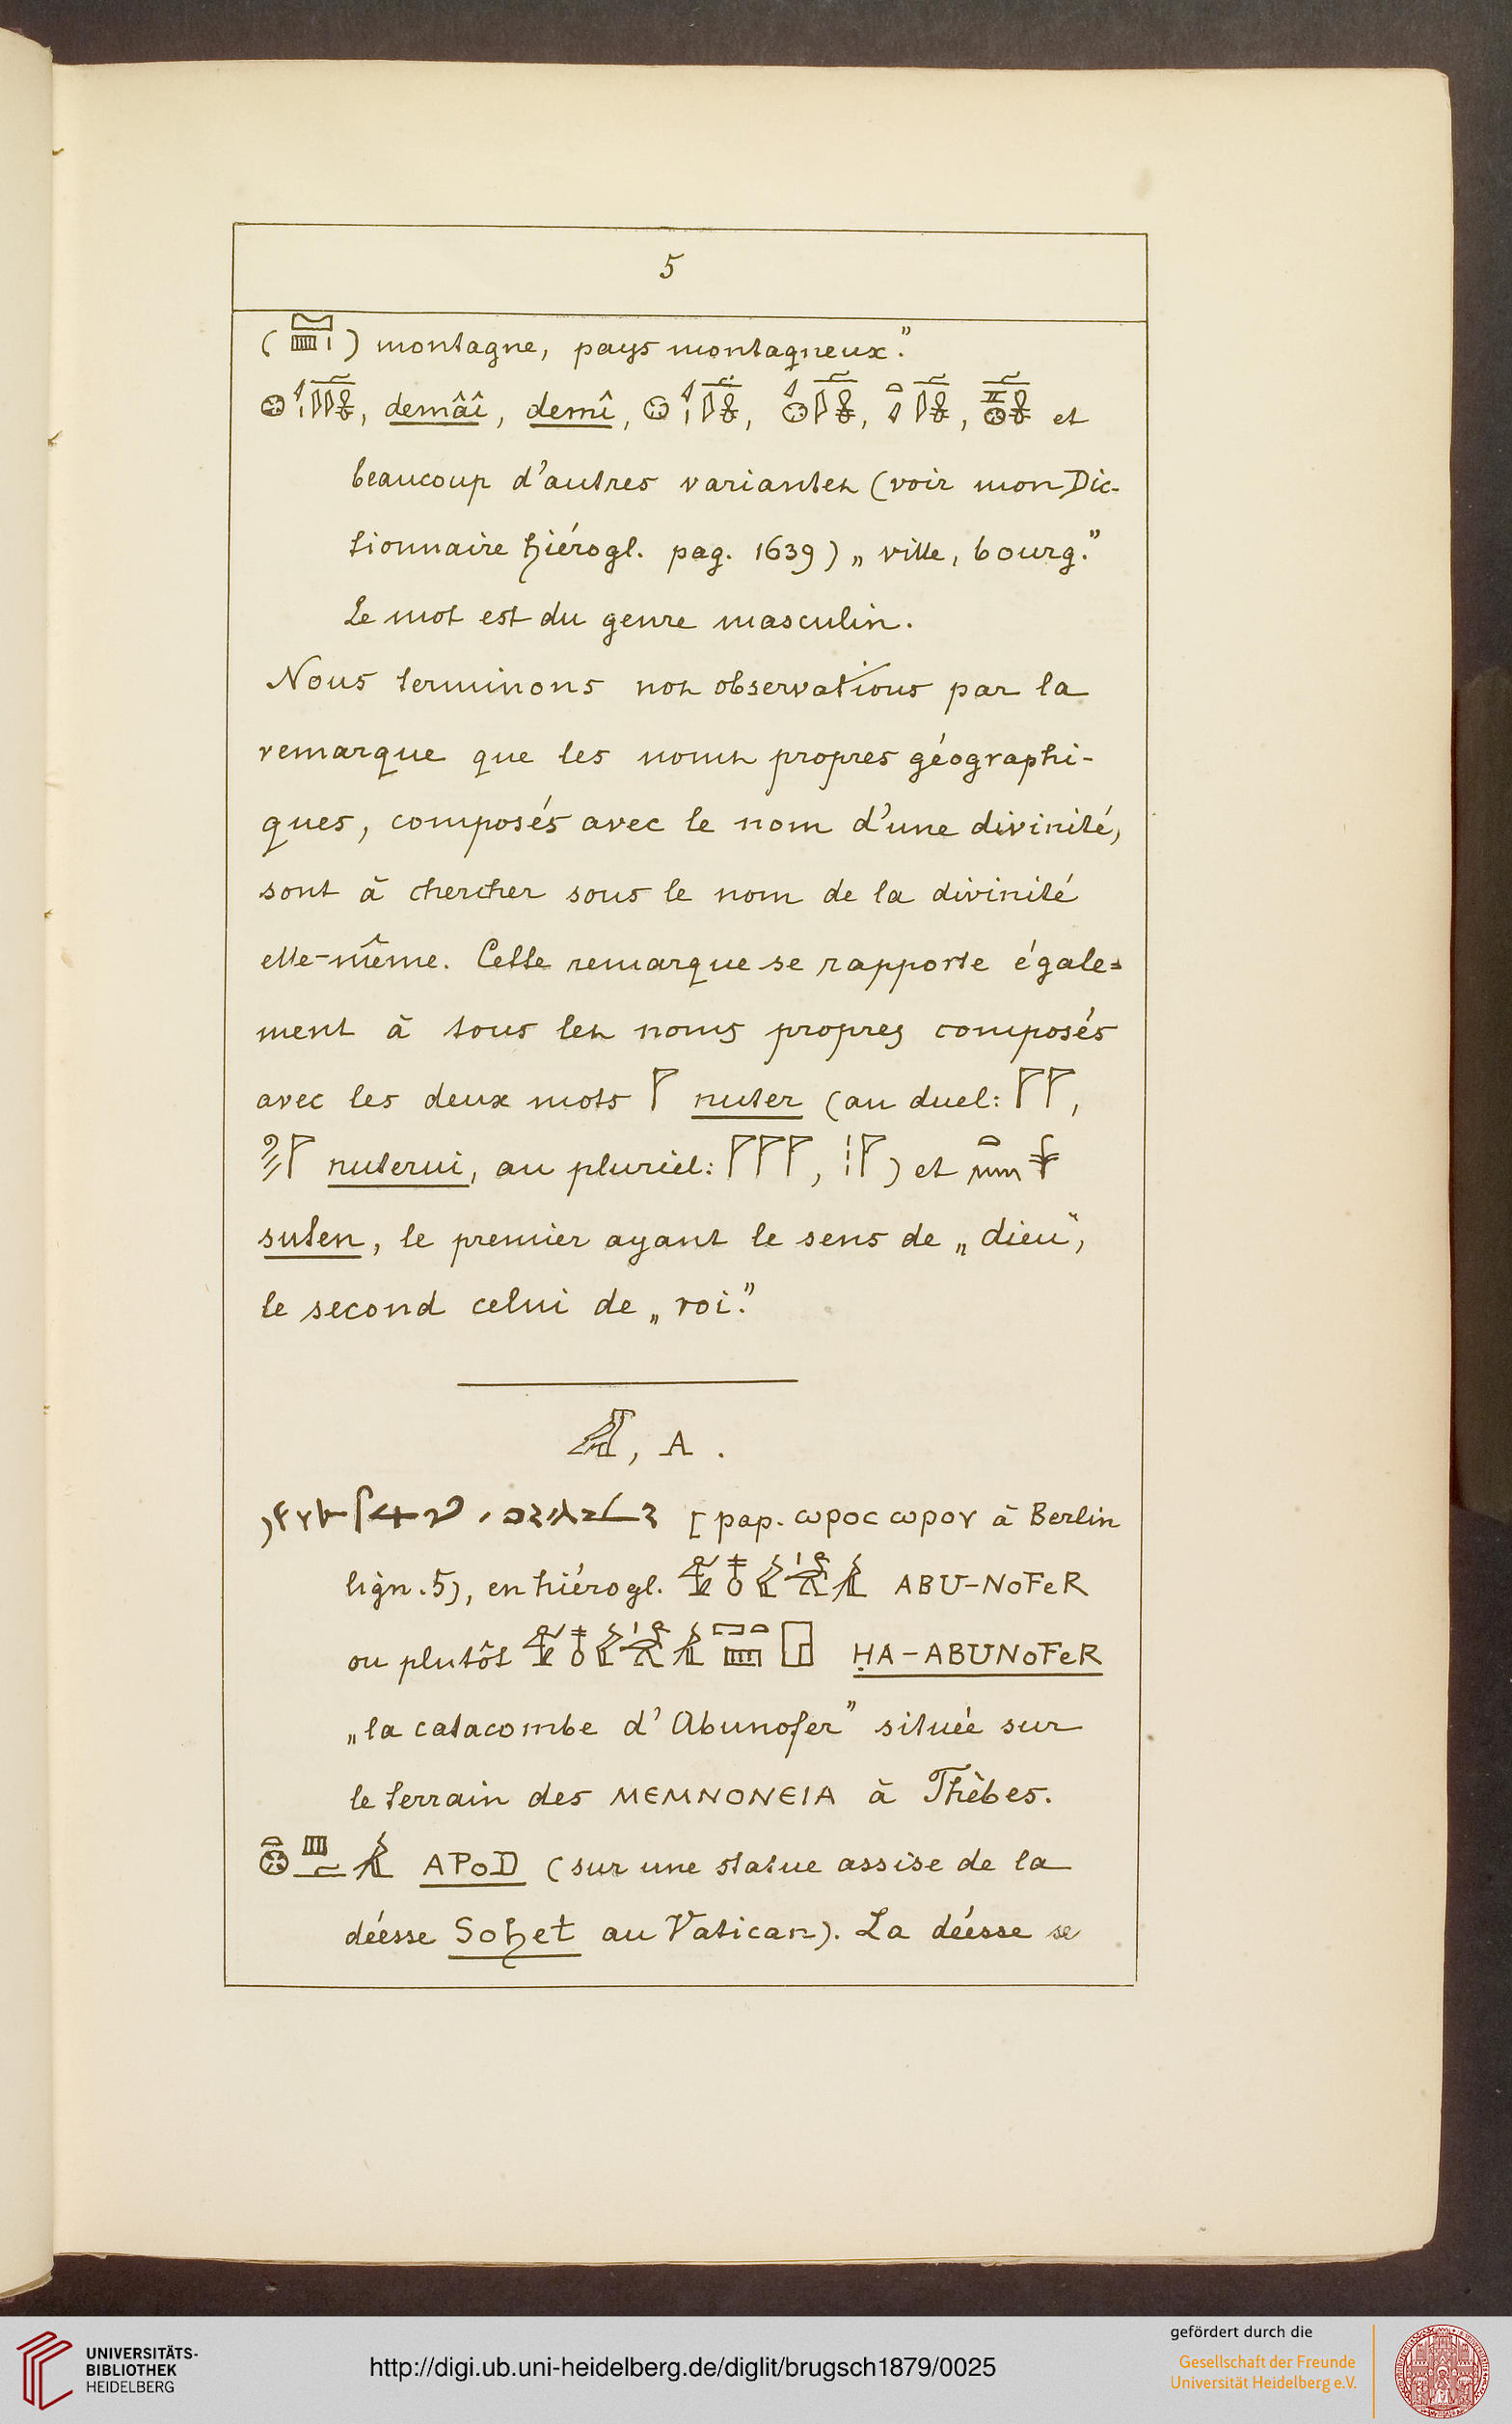 5
( ) montagne, pays montagneux."
, demâî, demî, , , , et
beaucoup d'autres variantes (voir mon Dic-
tionnaire hiérogl. pag. 1639) „ ville, bourg."
Le mot est du genre masculin.
Nous terminons nos observations par la
remarque que les noms propres géographi-
ques, composés avec le nom d'une divinité,
sont à chercher sous le nom de la divinité
elle-même. Cette remarque se rapporte égale=
ment à tous les noms propres composés
avec les deux mots 𓊹 nuter (au duel: 𓊹𓊹,
nuterui, au pluriel: 𓊹𓊹𓊹, ) et
suten, le premier ayant le sens de „ dieu",
le second celui de „ roi."
𓄿, A.
[pap. ωρος ωρου à Berlin
lign. 5), en hiérogl. ABU-NoFeR
ou plutôt ḤA-ABUNoFeR
„la catacombe d'Abunofer" située sur
le terrain des MEMNONEIA à Thèbes.
APoD (sur une statue assise de la
déesse Soḫet au Vatican). La déesse se
UNIVERSITÄTS-
BIBLIOTHEK
HEIDELBERG
http://digi.ub.uni-heidelberg.de/diglit/brugsch1879/0025
gefördert durch die
Gesellschaft der Freunde
Universität Heidelberg e.V.